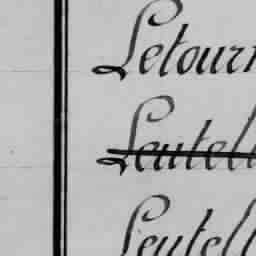 Letourn
Leutell
Leutell